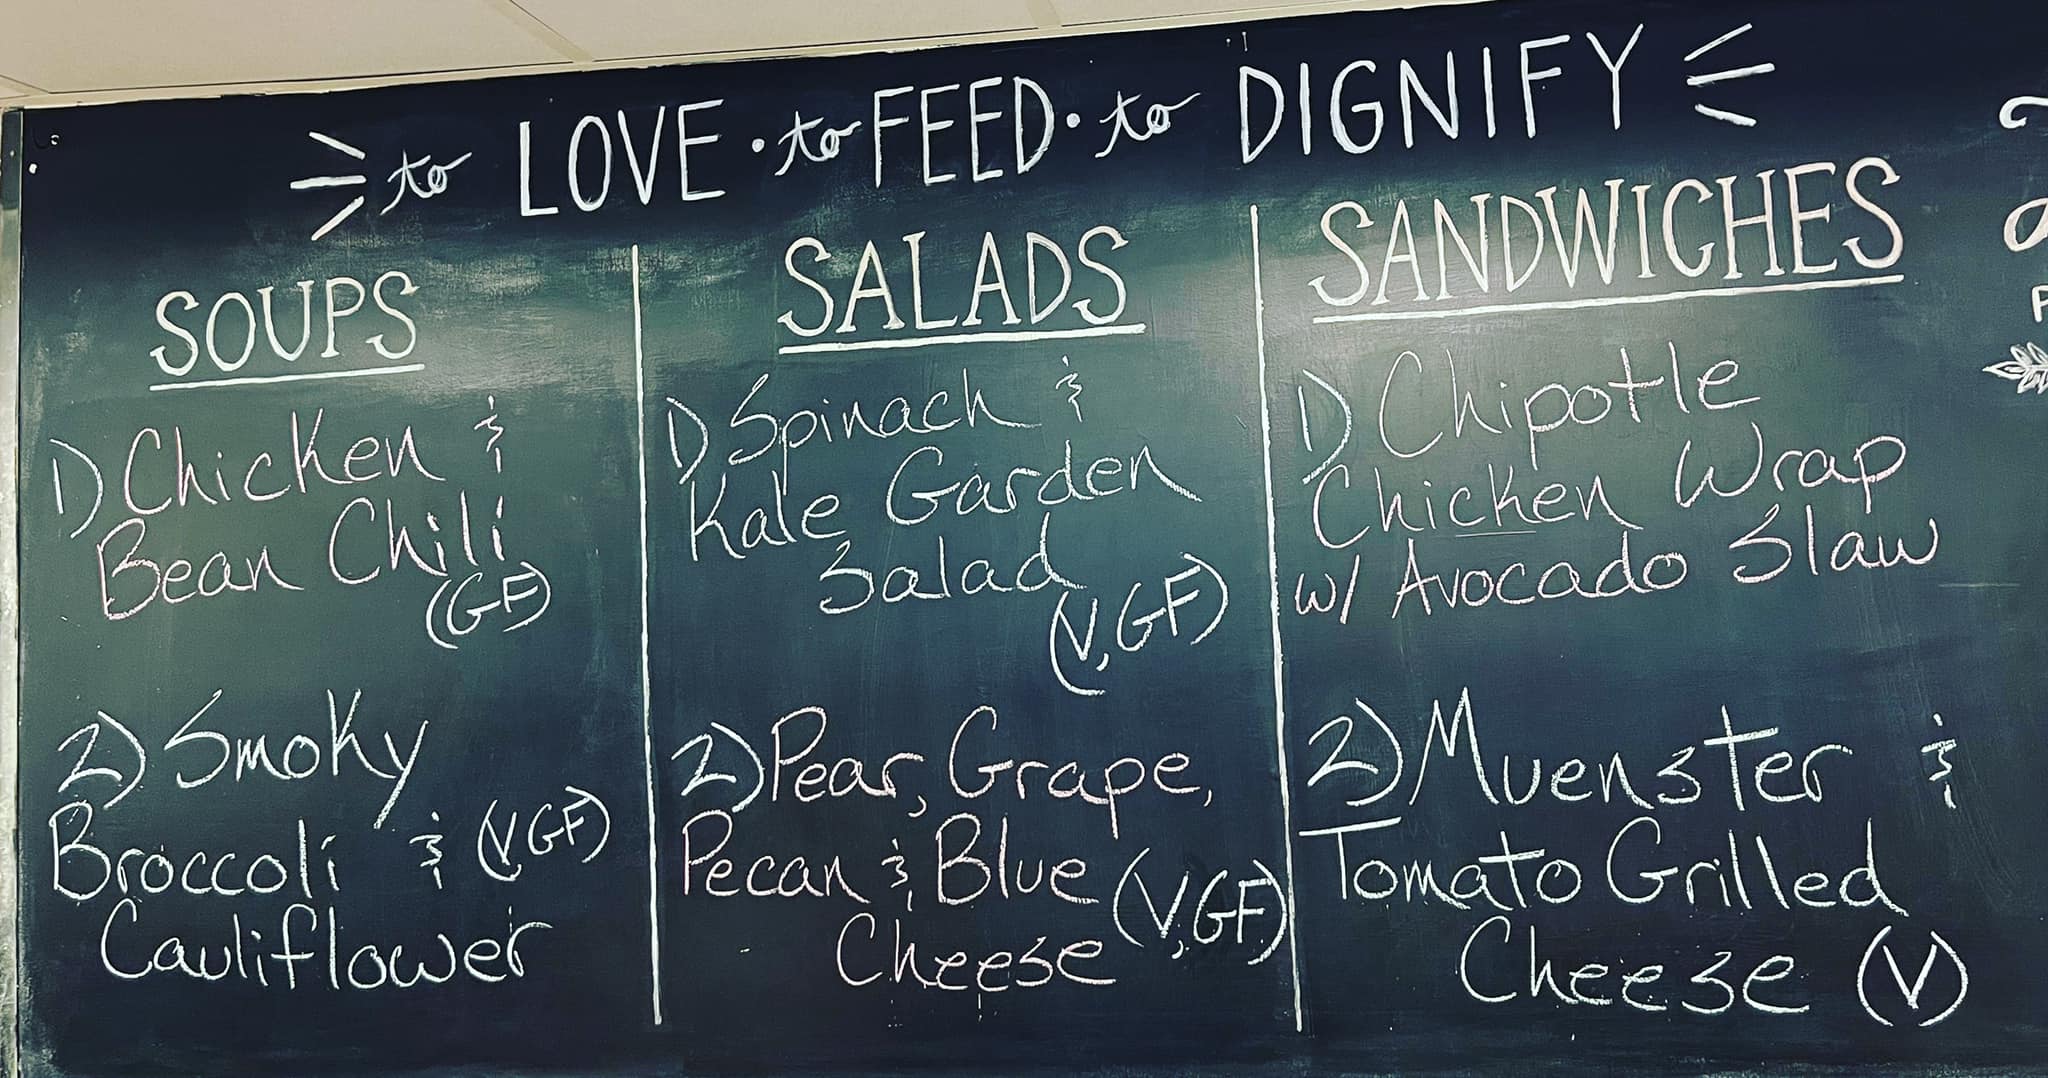 to LOVE · to FEED · to DIGNIFY
SOUPS
1) Chicken &
Bean Chili
(GF)
2) Smoky
Broccoli & (V, GF)
Cauliflower
SALADS
1) Spinach &
Kale Garden
Salad
(V, GF)
2) Pear, Grape,
Pecan & Blue
Cheese (V, GF)
SANDWICHES
1) Chipotle
Chicken Wrap
w/ Avocado Slaw
2) Muenster &
Tomato Grilled
Cheese (V)